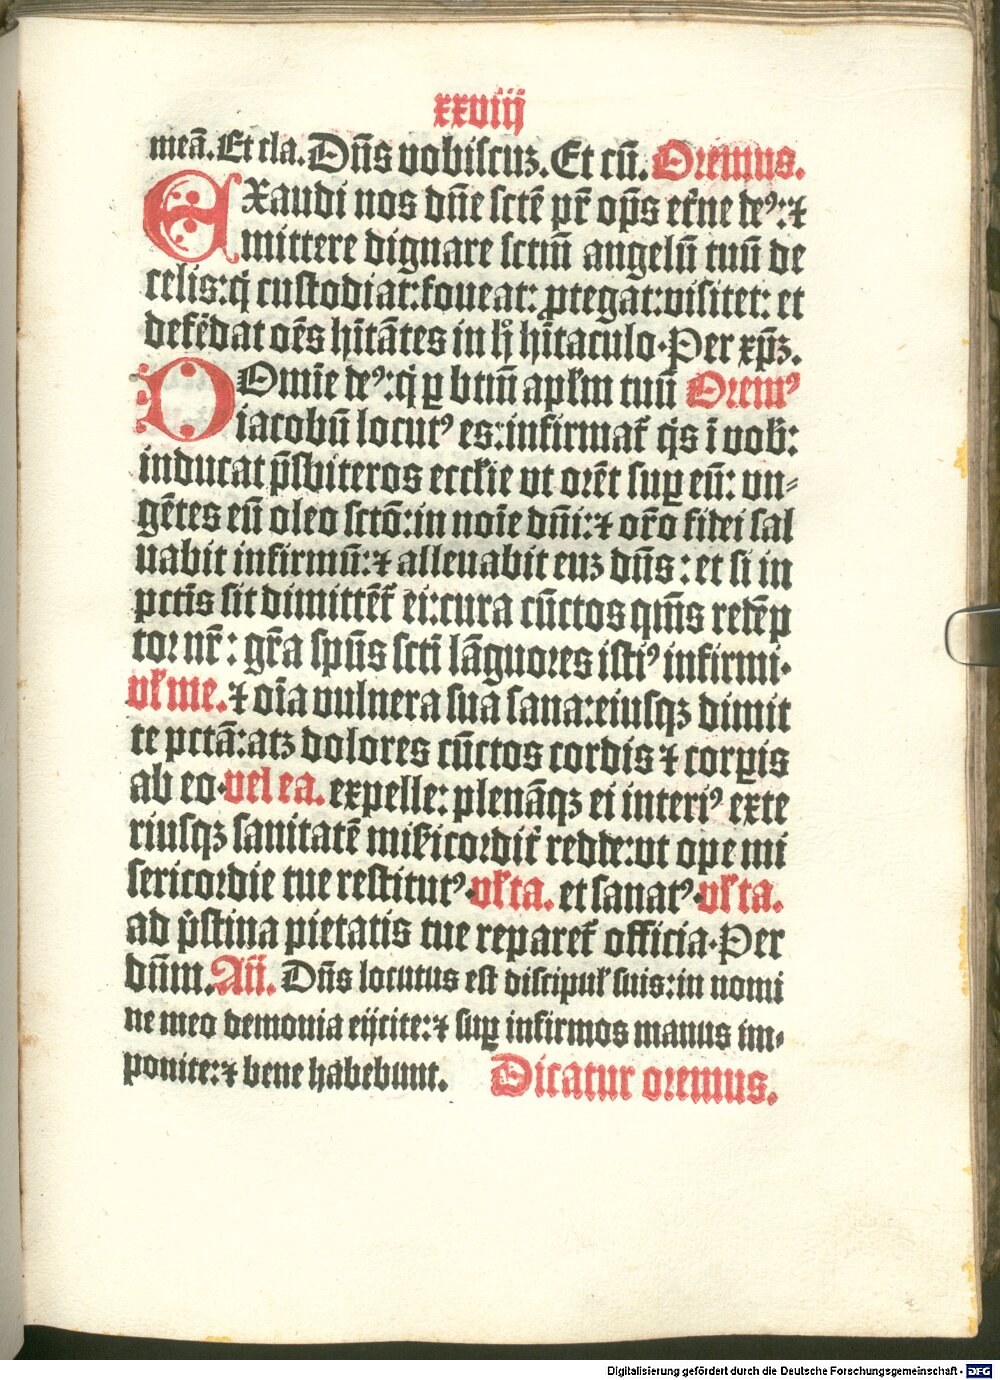 xxviij
meā. Et cla. Dn̄s vobiscuꝫ. Et cū. Oremus.
EXaudi nos dn̄e sctē pr̄ op̄s et̄ne deꝰ: ⁊
mittere dignare sctm̄ angelū tuū de
celis: q̇ custodiat: foueat: ꝓtegat: visitet: et
defēdat oēs hītātes in hͦ hītaculo. Per xp̄ꝫ.
DOmīe deꝰ: q̇ ꝑ btm̄ apl̄m tuū Oremꝰ
iacobū locutꝰ es: infirmat᷑ q̇s ī vob̄:
inducat p̄sbiteros eccl̄ie vt orēt suꝑ eū: vn⸗
gētes eū oleo sctō: in noīe dn̄i: ⁊ or̄o fidei sal
uabit infirmū: ⁊ alleuabit euꝫ dn̄s: et si in
pctīs sit dimittēt᷑ ei: cura cūctos qm̄s redēp
tor nr̄: gr̄a sp̄us sctī lāguores istiꝰ infirmi.
vl̄ me. ⁊ oīa vulnera sua sana: eiusqꝫ dimit
te pctā: atꝫ dolores cūctos cordis ⁊ corꝑis
ab eo. vel ea. expelle: plenāqꝫ ei interiꝰ exte
riusqꝫ sanitatē mis̄icordit᷑ redde: vt ope mi
sericordie tue restitutꝰ. vl̄ ta. et sanatꝰ. vl̄ ta.
ad ṗstina pietatis tue reparet᷑ officia. Per
dūm. Aū. Dn̄s locutus est discipul̄ suis: in nomi
ne meo demonia eijcite: ⁊ suꝑ infirmos manus im⸗
ponite: ⁊ bene habebunt. Dicatur oremus.
Digitalisierung gefördert durch die Deutsche Forschungsgemeinschaft - DFG